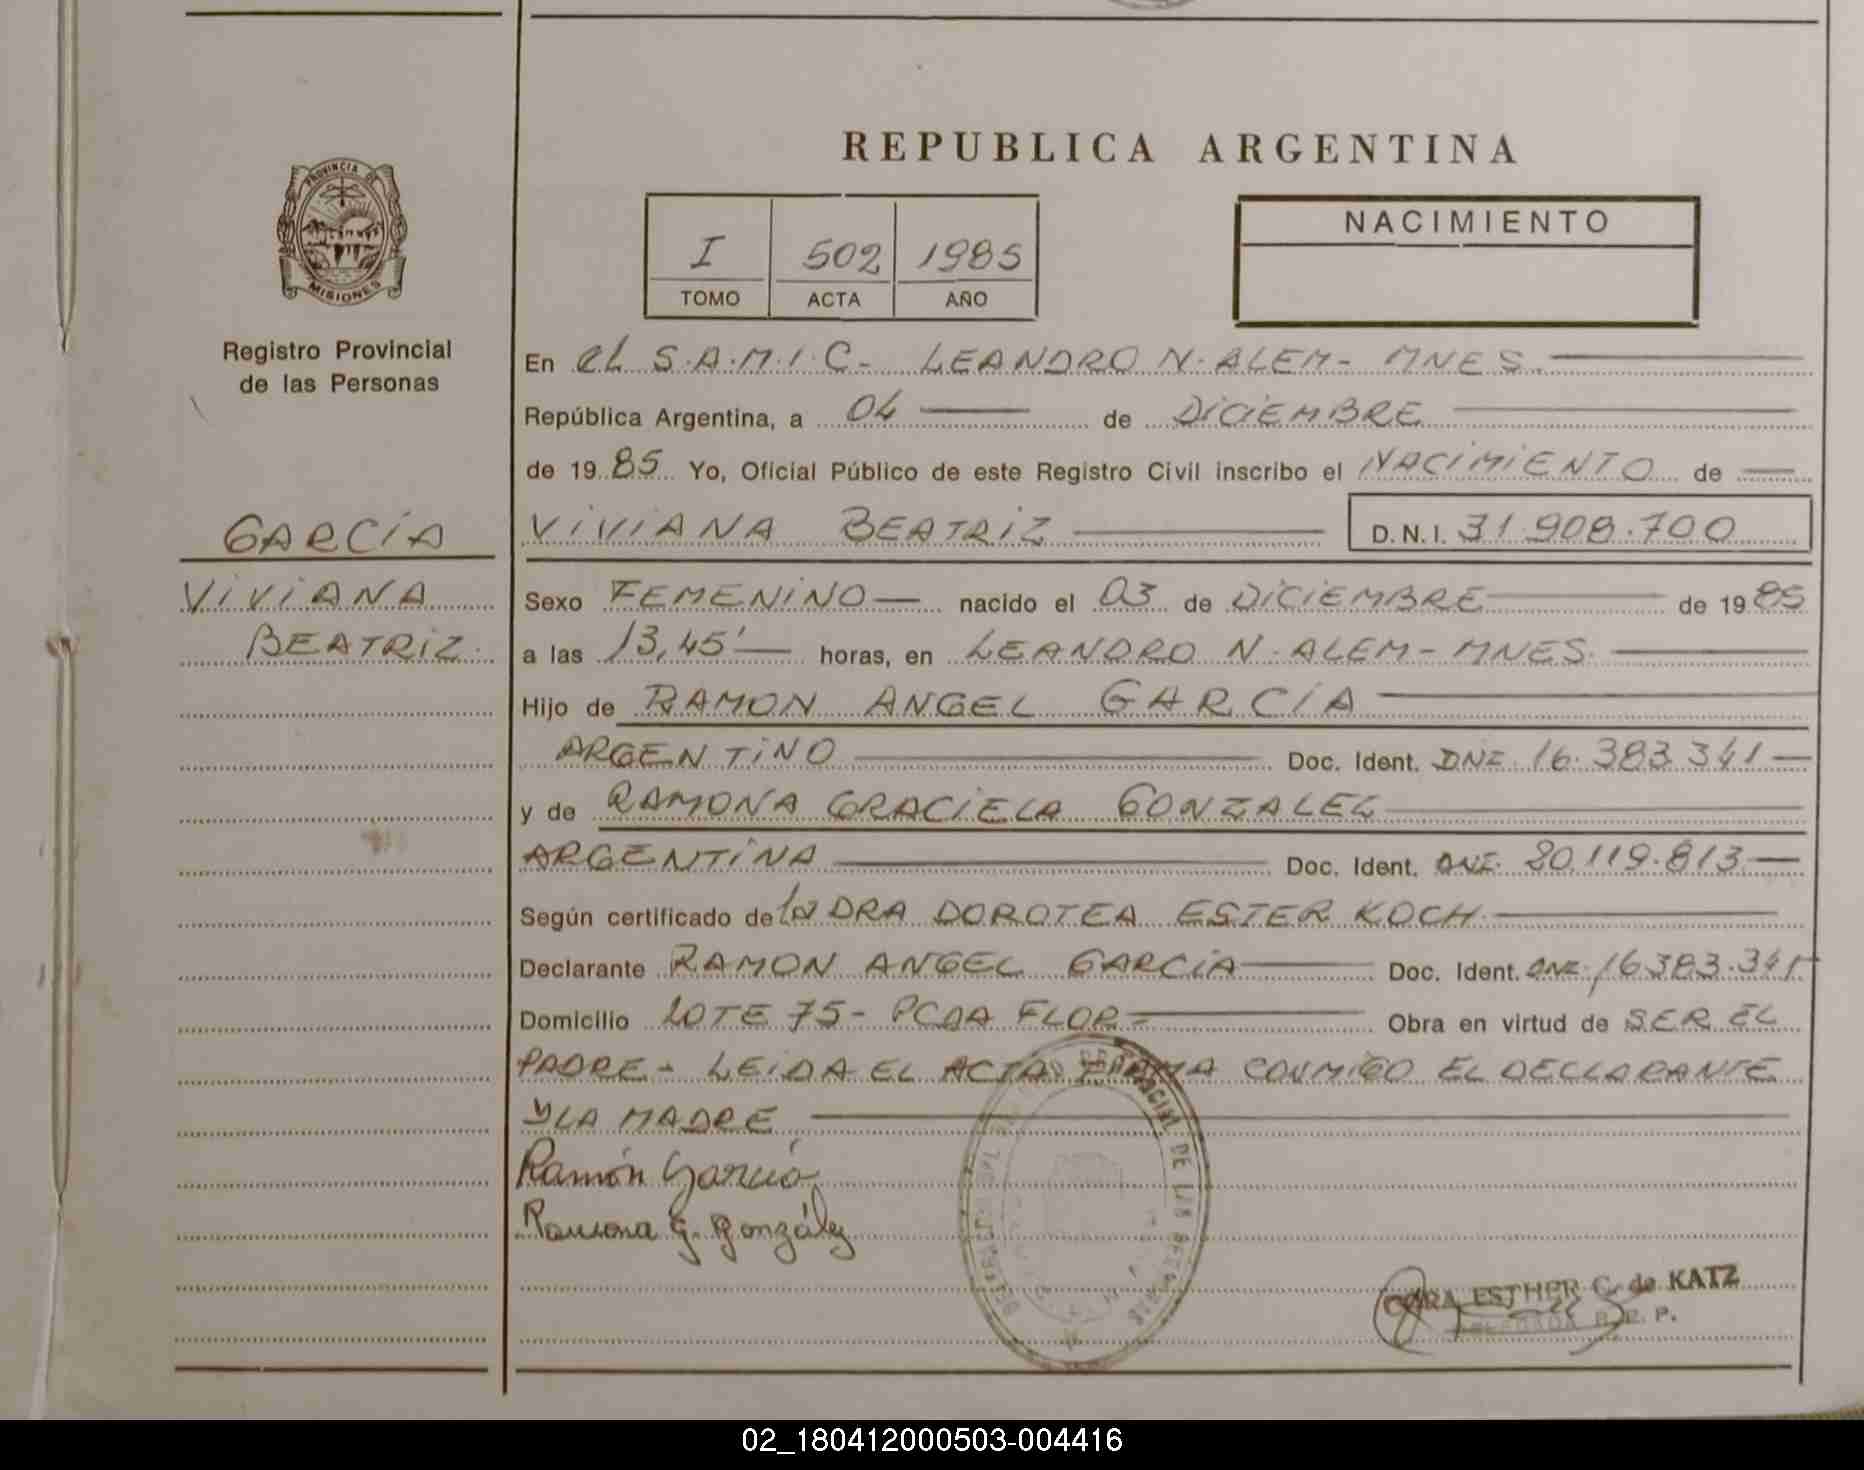 REPUBLICA ARGENTINA
PROVINCIA DE
MISIONES
Registro Provincial
de las Personas
I 502 1985
TOMO ACTA AÑO
NACIMIENTO
En el S.A.M.I.C- LEANDRO N. ALEM- MNES.
República Argentina, a 04 de DICIEMBRE
de 1985 Yo, Oficial Público de este Registro Civil inscribo el NACIMIENTO de
GARCÍA
VIVIANA BEATRIZ D.N.I. 31.908.700
VIVIANA
BEATRIZ.
Sexo FEMENINO nacido el 03 de DICIEMBRE de 1985
a las 13,45' horas, en LEANDRO N. ALEM- MNES.
Hijo de RAMON ANGEL GARCÍA
ARGENTINO Doc. Ident. DNI. 16.383.341
y de RAMONA GRACIELA GONZALEZ
ARGENTINA Doc. Ident. DNI. 20.119.813
Según certificado de la DRA DOROTEA ESTER KOCH.
Declarante RAMON ANGEL GARCIA Doc. Ident. DNI. 16.383.341
Domicilio LOTE 75- PCDA FLOR- Obra en virtud de SER EL
PADRE- LEIDA EL ACTA FIRMA CONMIGO EL DECLARANTE
Y LA MADRE
Ramón García
Ramona G. González
ESTHER C. de KATZ
02_180412000503-004416